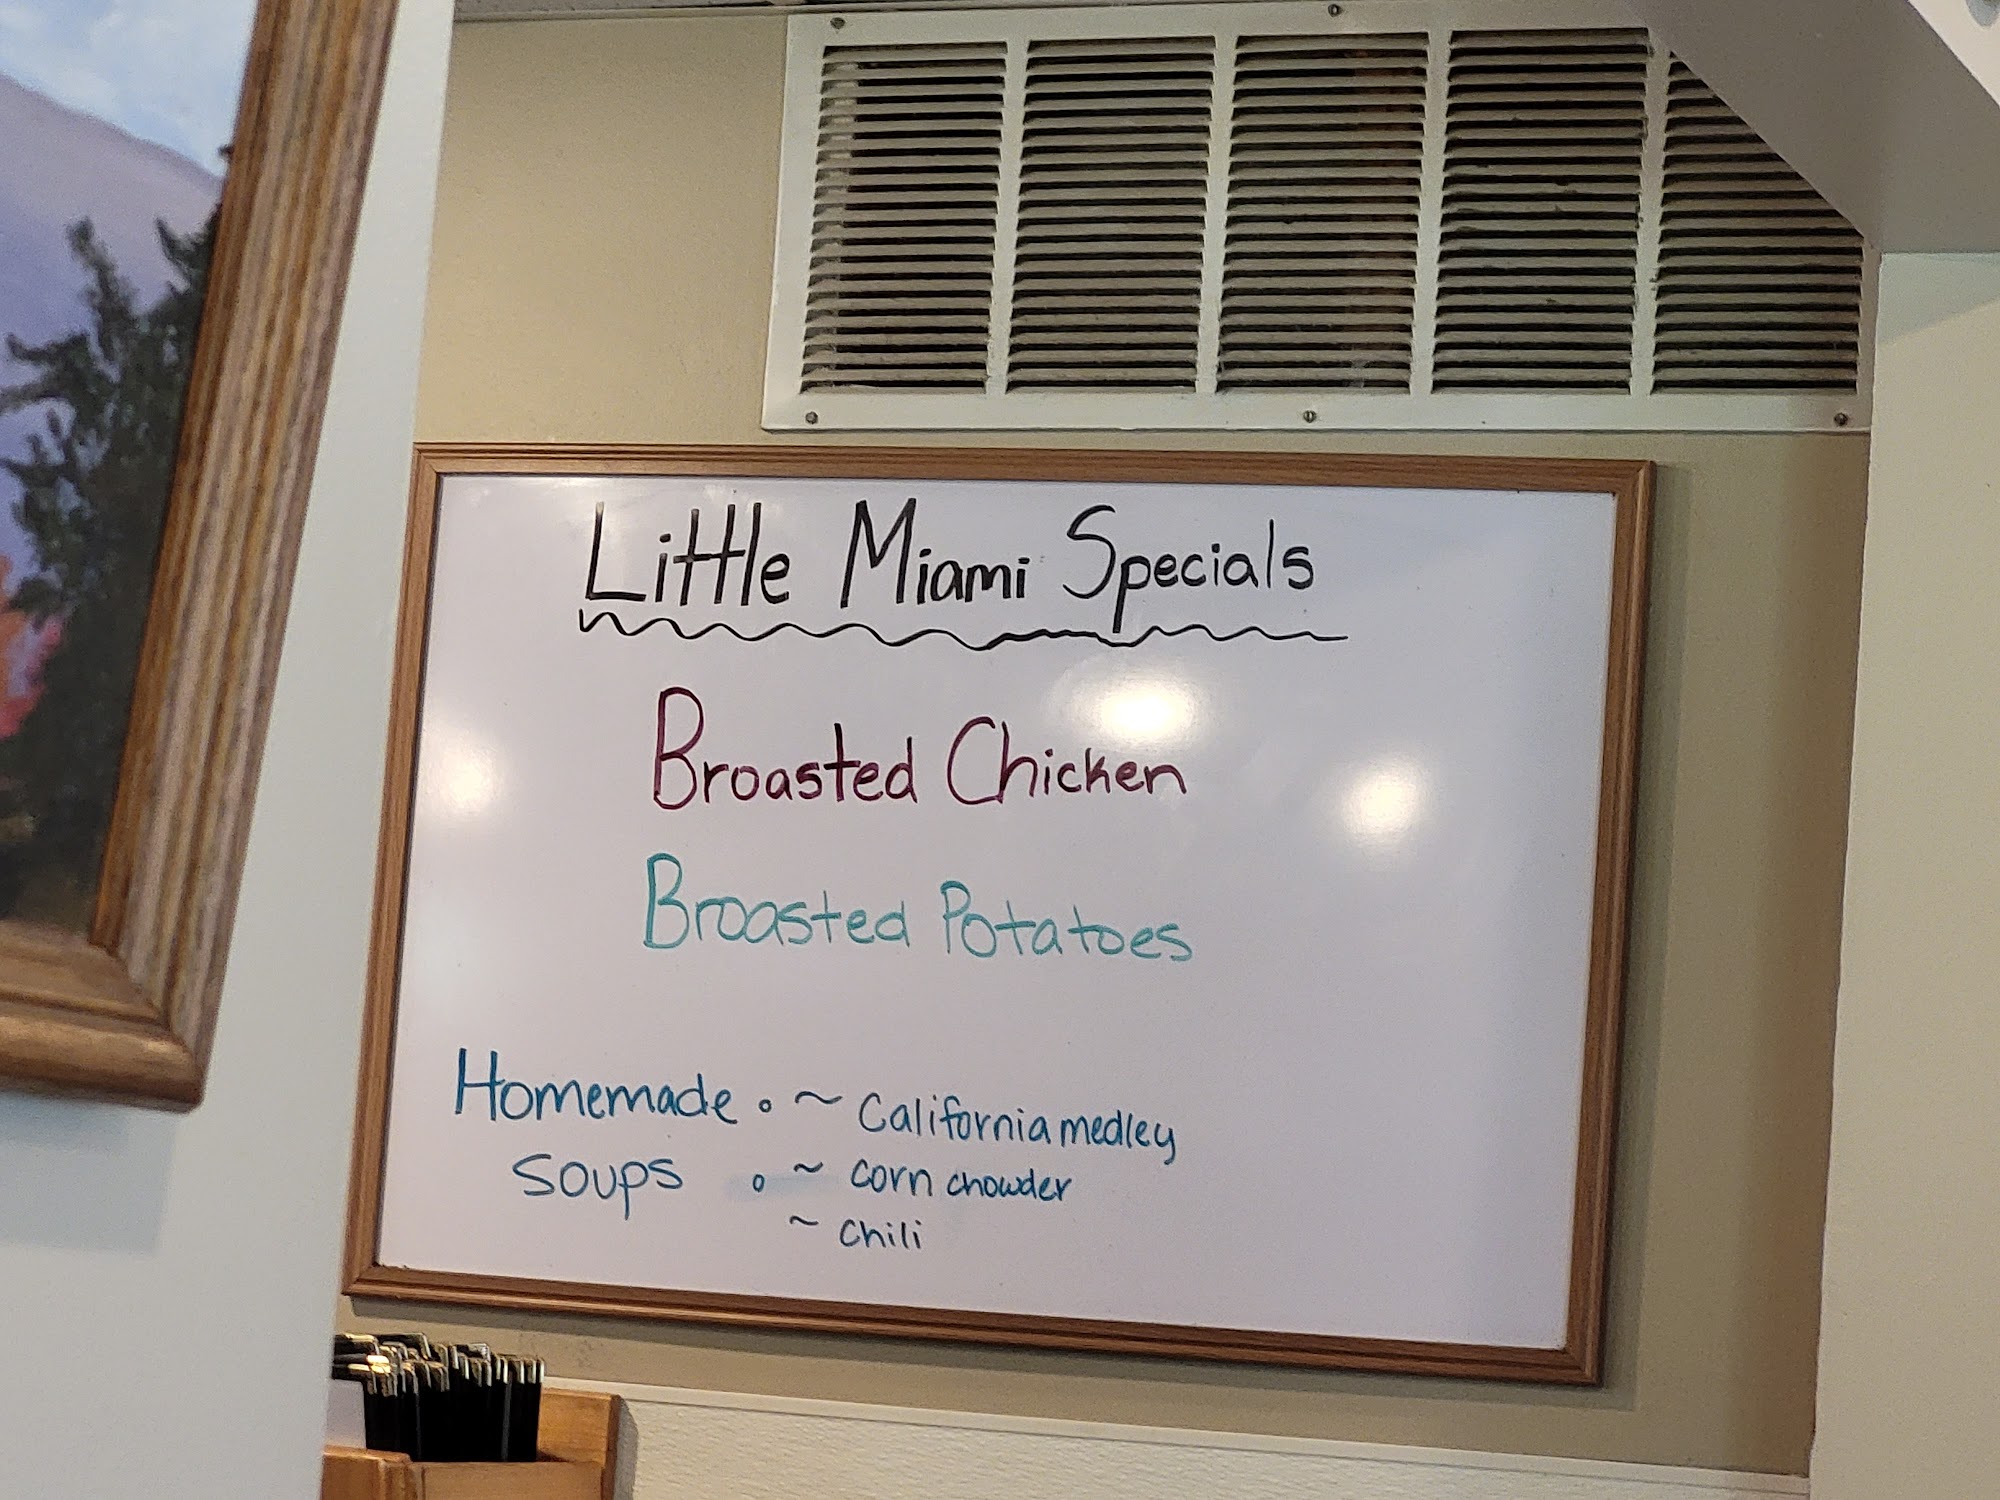 Little Miami Specials
Broasted Chicken
Broasted Potatoes
Homemade : ~ California medley
Soups ~ corn chowder
~ chili